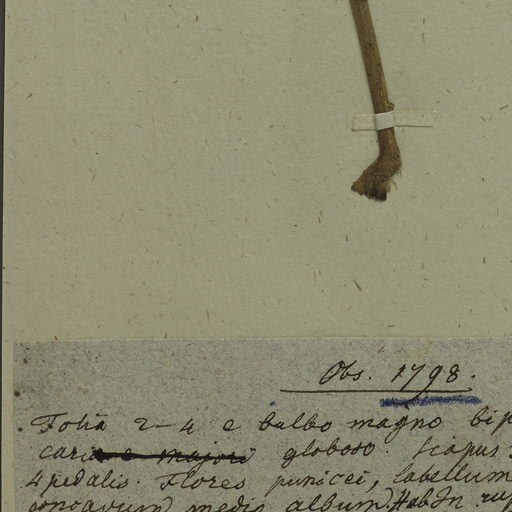 Obs. 1798.
Folia 2-4 e bulbo magno bip
cari e majori globoso. Scapus
4 pedalis. Flores punicei, labellum
concavum medio album. Hab. In rup